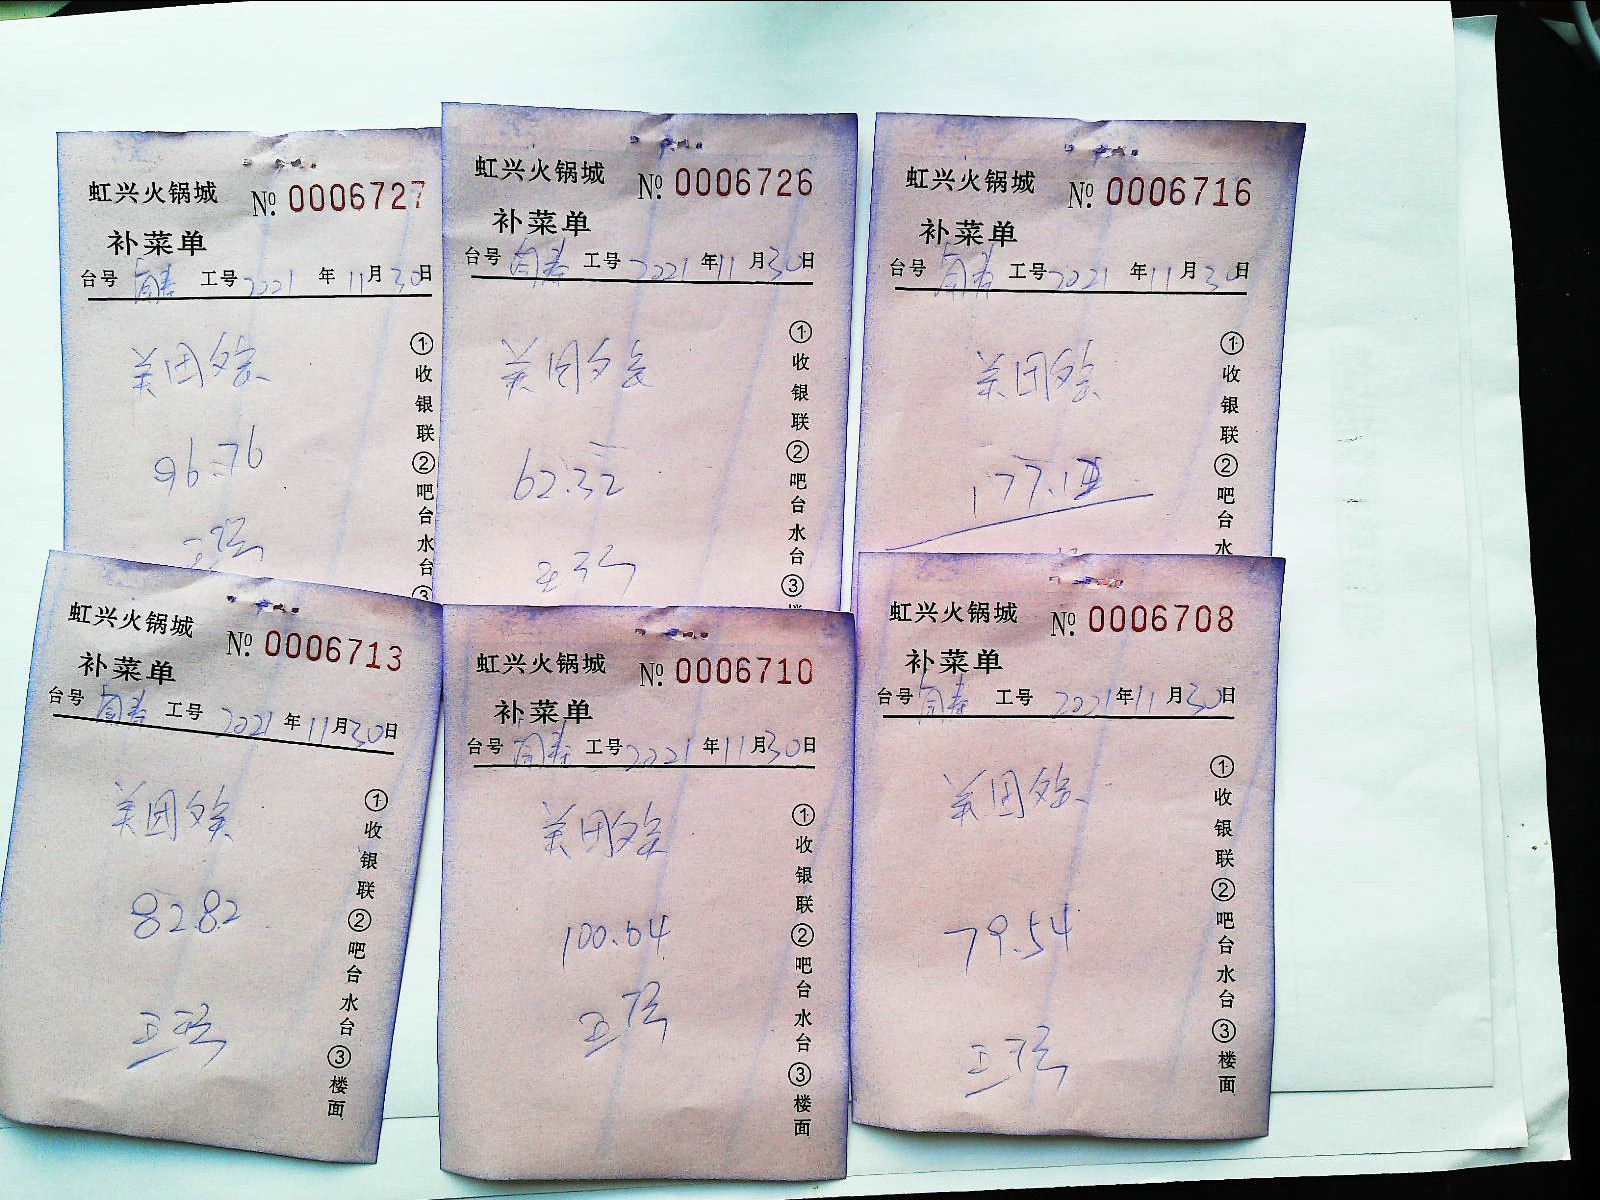 虹兴火锅城 № 0006727
补菜单
台号 工号 2021 年 11 月 30 日
美团外卖
96.76
①收银联②吧台水台③
虹兴火锅城 № 0006726
补菜单
台号 工号 2021 年 11 月 30 日
美团外卖
62.32
①收银联②吧台水台③
虹兴火锅城 № 0006716
补菜单
台号 工号 2021 年 11 月 30 日
美团外卖
①收银联②吧台水
虹兴火锅城 № 0006713
补菜单
台号 工号 2021 年 11 月 30 日
美团外卖
82.82
①收银联②吧台水台③楼面
虹兴火锅城 № 0006710
补菜单
台号 工号 2021 年 11 月 30 日
美团外卖
100.64
①收银联②吧台水台③楼面
虹兴火锅城 № 0006708
补菜单
台号 工号 2021 年 11 月 30 日
美团外卖
79.54
①收银联②吧台水台③楼面